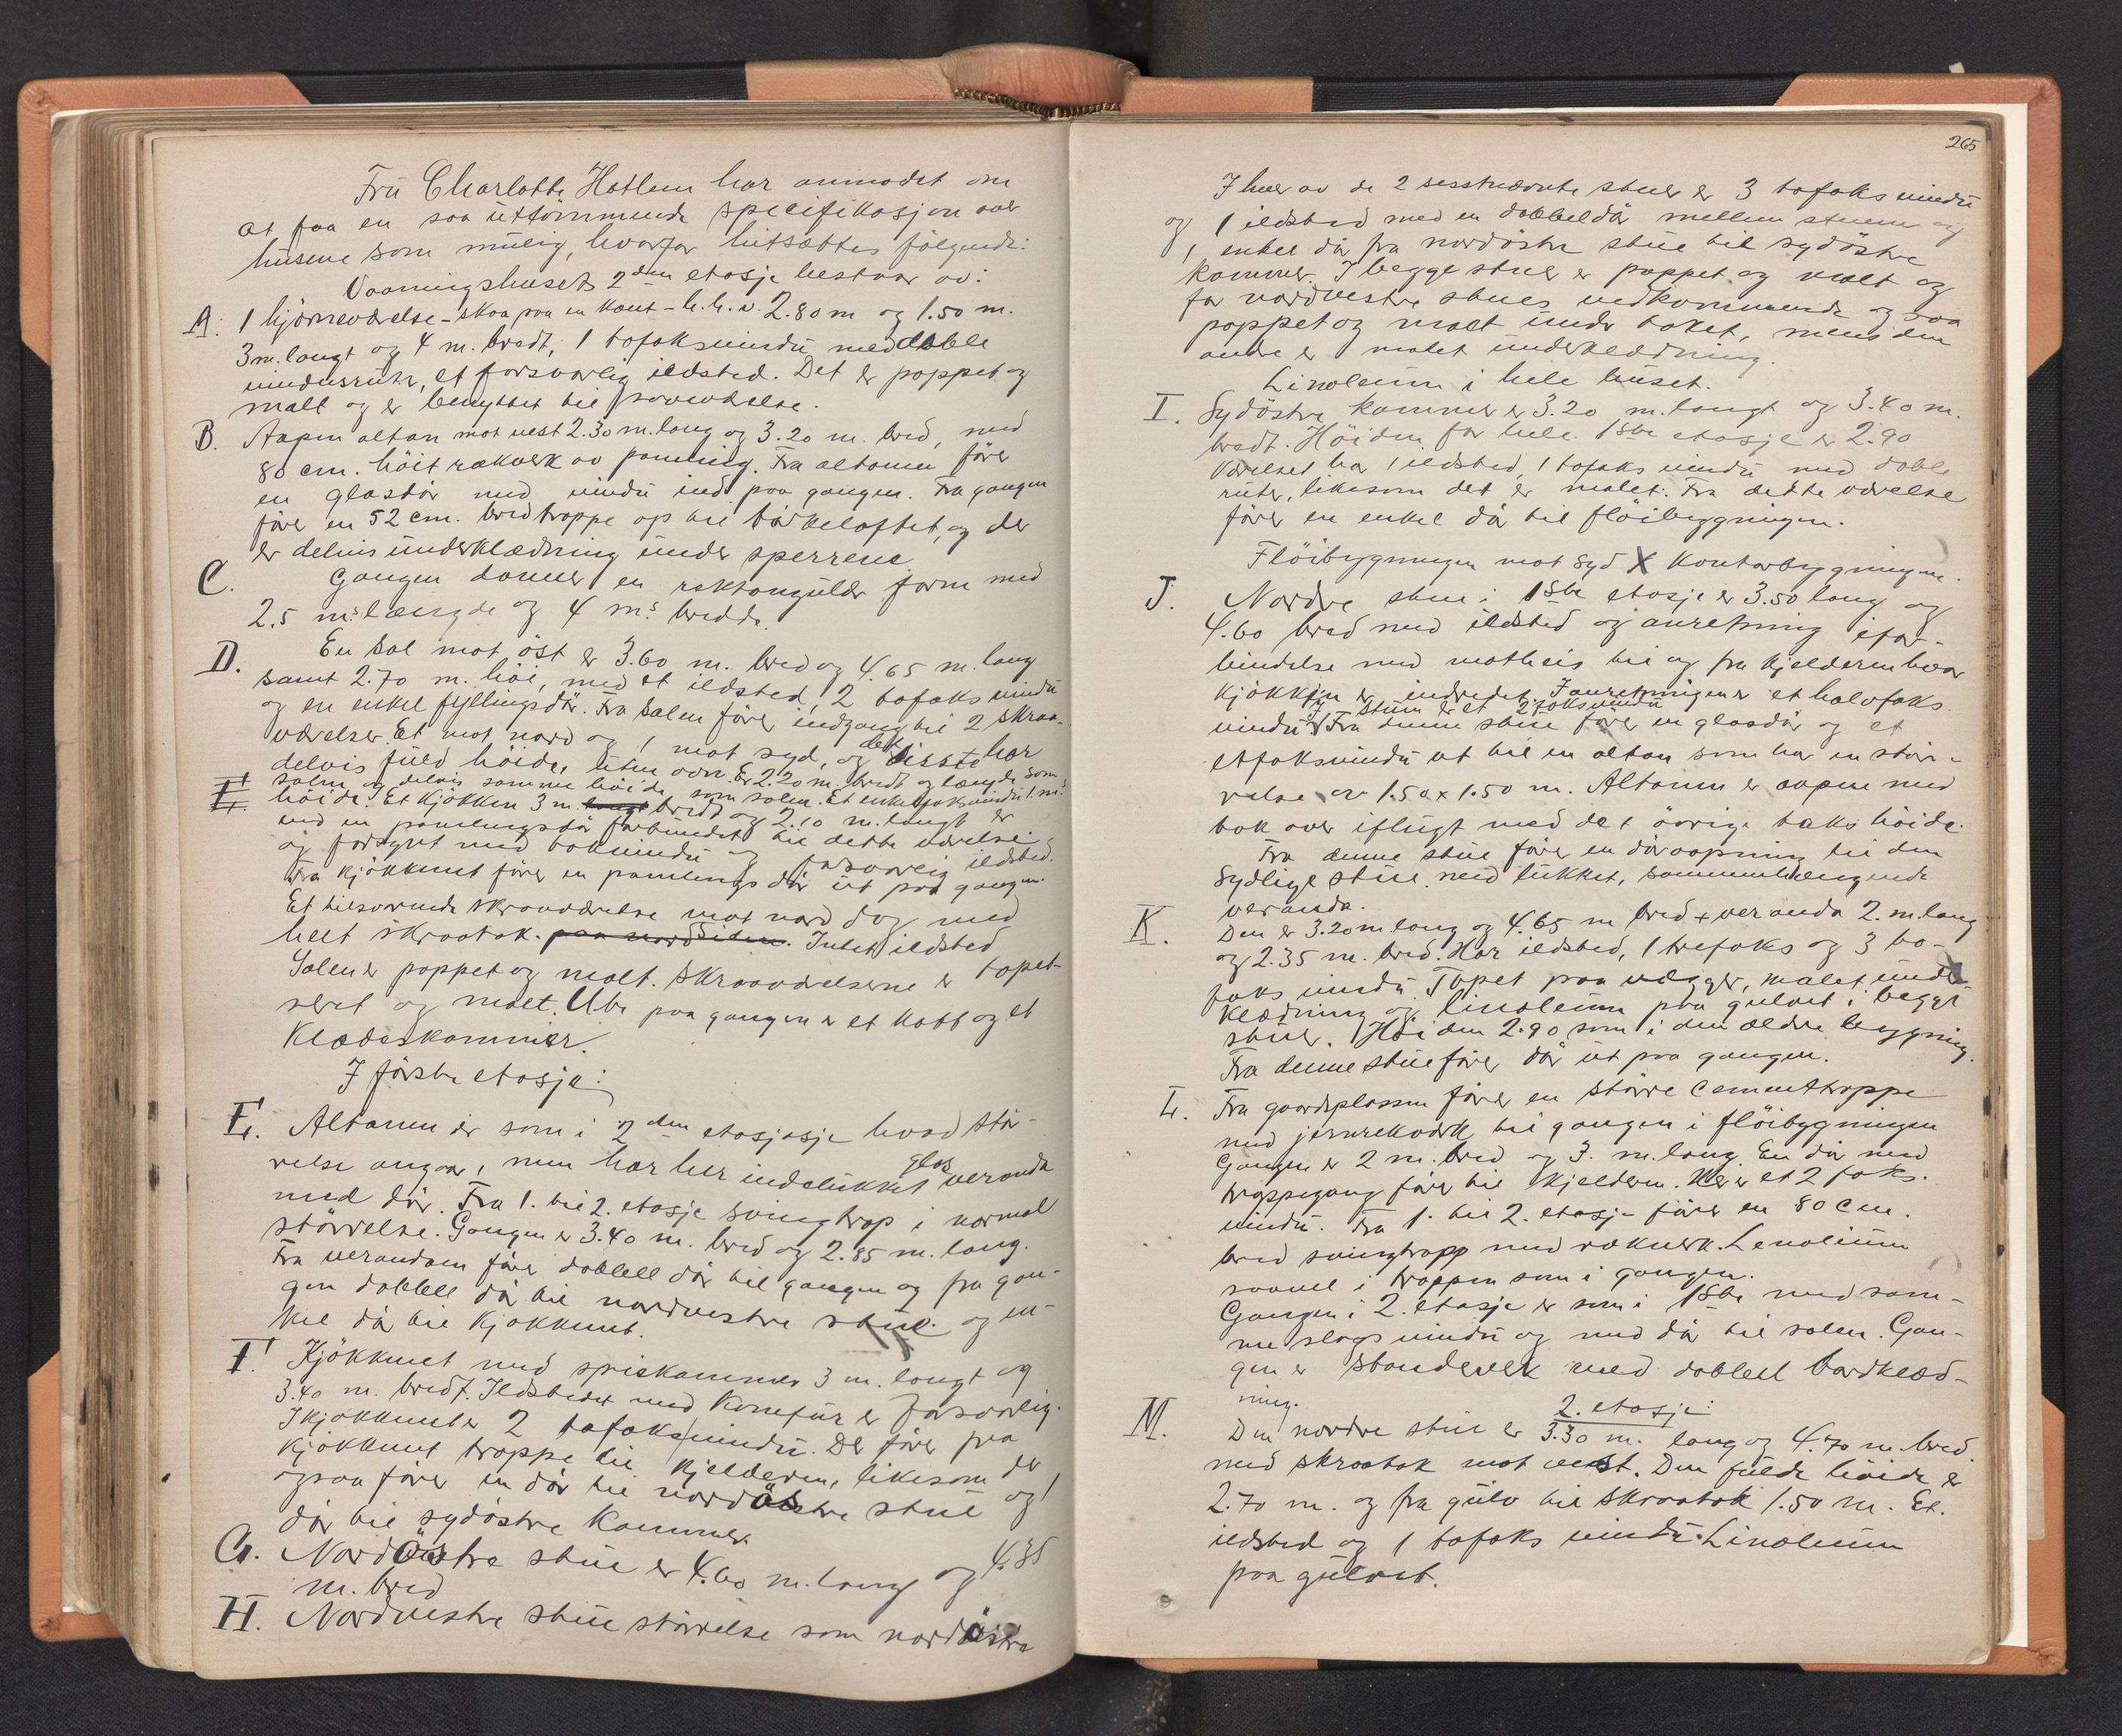 Fru Charlotte Hatlem har anmodet om
at faa en saa uttömmende specifikasjon over
husene som mulig, hvorfor hitsættes fölgende:
Vaaningshusets 2den etasje bestaar av:
A. 1 hjörneværelse - skraa paa en kant - h.h.v. 2.80 m og 1.50 m.
3 m. langt og 4 m. bredt, 1 tofaksvindu med doble
vindusruter, et forsvarlig ildsted. Det er pappet og
malt og er benyttet til soveværelse.
B. Aapen altan mot vest 2.30 m. lang og 3.20 m. bred, med
80 cm. höit rækverk av panning. Fra altanen förer
en glasdör med vindu ind paa gangen. Fra gangen
förer en 52 cm. bred trappe op til törkeloftet, og der
er delvis underklædning under sperrene.
C. Gangen danner en rektangulær form med
2.5 m.s længde og 4 m.s bredde.
D. En sal mot öst er 3.60 m. bred og 4.65 m. lang
samt 2.70 m. höi, med et ildsted, 2 tofaks vindu
og en enkel fyllingsdör. Fra salen förer indgang til 2 skraa-
værelser. Et mot nord og 1 mot syd, og det sisste har
delvis fuld höide, uten ovn. Er 2.20 m. bredt og længde som
salen og delvis samme höide som salen. Et enkeltfaksvindu 1 m.s
E. höide. Et kjökken 3 m. langt bredt og 2.10 m. langt er
ved en panelingsdör forbundet til dette værelse
og forsynt med takvindu og forsvarlig ildsted.
Fra kjökkenet förer en panelings dör ut paa gangen.
Et tilsvarende skraaværelse mot nord dog med
helt skraatak. paa nordsiden. Intet ildsted
Salen er pappet og malt. Skraaværelserne er tapet-
seret og malt. Ute paa gangen er et kott og et
Klædeskammer.
I förste etasje:
E. Altanen er som i 2den etasjasje hvad stör-
relse angaar, men har her indelukket glas veranda
med dör. Fra 1. til 2. etasje svingtrap i normal
störrelse. Gangen er 3.40 m. bred og 2.85 m. lang.
Fra verandaen förer dobbell dör til gangen og fra gan-
gen dobbell dör til nordvestre stue og en-
kel dör til kjökkenet.
F. Kjökkenet med spiskammer 3 m. langt og
3.40 m. bredt. Ildstedet med komfur er forsvarlig.
I kjökkenet er 2 tofaksvindu. Der förer fra
kjökkenet trappe til kjelderen, likesom der
ogsaa förer en dör til nordöstre stue og 1
dör til sydöstre kammer.
G. Nordöstre stue er 4.60 m. lang og 4.35
m. bred
H. Nordvestre stue störrelse som nordöstre
265
I hver av de 2 sisstnævnte stuer er 3 tofaks vindu
og 1 ildsted med en dobbeldör mellem stuene og
1 enkel dör fra nordöstre stue til sydöstre
kammer. I begge stuer er pappet og malt og
for nordvestre stues vedkommende og saa
pappet og malt under taket, mens den
andre er malet underklædning.
Linoleum i hele huset.
I. Sydöstre kammer er 3.20 m. langt og 3.40 m.
bredt. Höiden for hele 1ste etasje er 2.90
Værelset har 1 ildsted, 1 tofaks vindu med doble
ruter, likesom det er malet. Fra dette værelse
förer en enkel dör til flöibyggningen.
Flöibygningen mot syd X kontorbygningen.
J. Nordre stue i 1ste etasje er 3.50 lang og
4.60 bred med ildsted og anretning i for-
bindelse med matheis til og fra kjelderen hvor
kjökken er indredet. I anretningen er et halvfaks
I stuen er et 2 faksvindu
vindu. Fra denne stue förer en glasdör og et
etfaksvindu ut til en altan som har en stör-
relse av 1.50 x 1.50 m. Altanen er aapen med
tak over iflugt med det övrige taks höide.
Fra denne stue förer en döraapning til den
sydlige stue med lukket, sammenhængende
veranda.
K. Den er 3.20 m lang og 4.65 m bred + veranda 2. m. lang
og 2.35 m. bred. Har ildsted, 1 trefaks og 3 to-
faks vindu. Tapet paa vægger, malet under-
klædning og linoleum paa gulvet i begge
stuer. Höiden 2.90 som i den ældre bygning.
Fra denne stue förer dör ut paa gangen.
L. Fra gaardsplassen förer en större Cementtrappe
med jernrekværk til gangen i flöibygningen
Gangen er 2 m. bred og 3. m. lang. En dör med
trappegang förer til kjelderen. Her er et 2 faks.
vindu. Fra 1. til 2. etasje förer en 80 cm.
bred svingtrapp med rækverk. Lenoleum
saavel i trappen som i gangen.
Gangen i 2. etasje er som i 1ste med sam-
me slags vindu og med dör til salen. Gan-
gen er standeverk med dobbell bordklæd-
ning.
2. etasje:
M. Den nordre stue er 3.30 m. lang og 4.70 m. bred.
med skraatak mot vest. Den fulde höide er
2.70 m. og fra gulv til skraatak 1.50 m. Et.
ildsted og 1 tofaks vindu. Linoleum
paa gulvet.